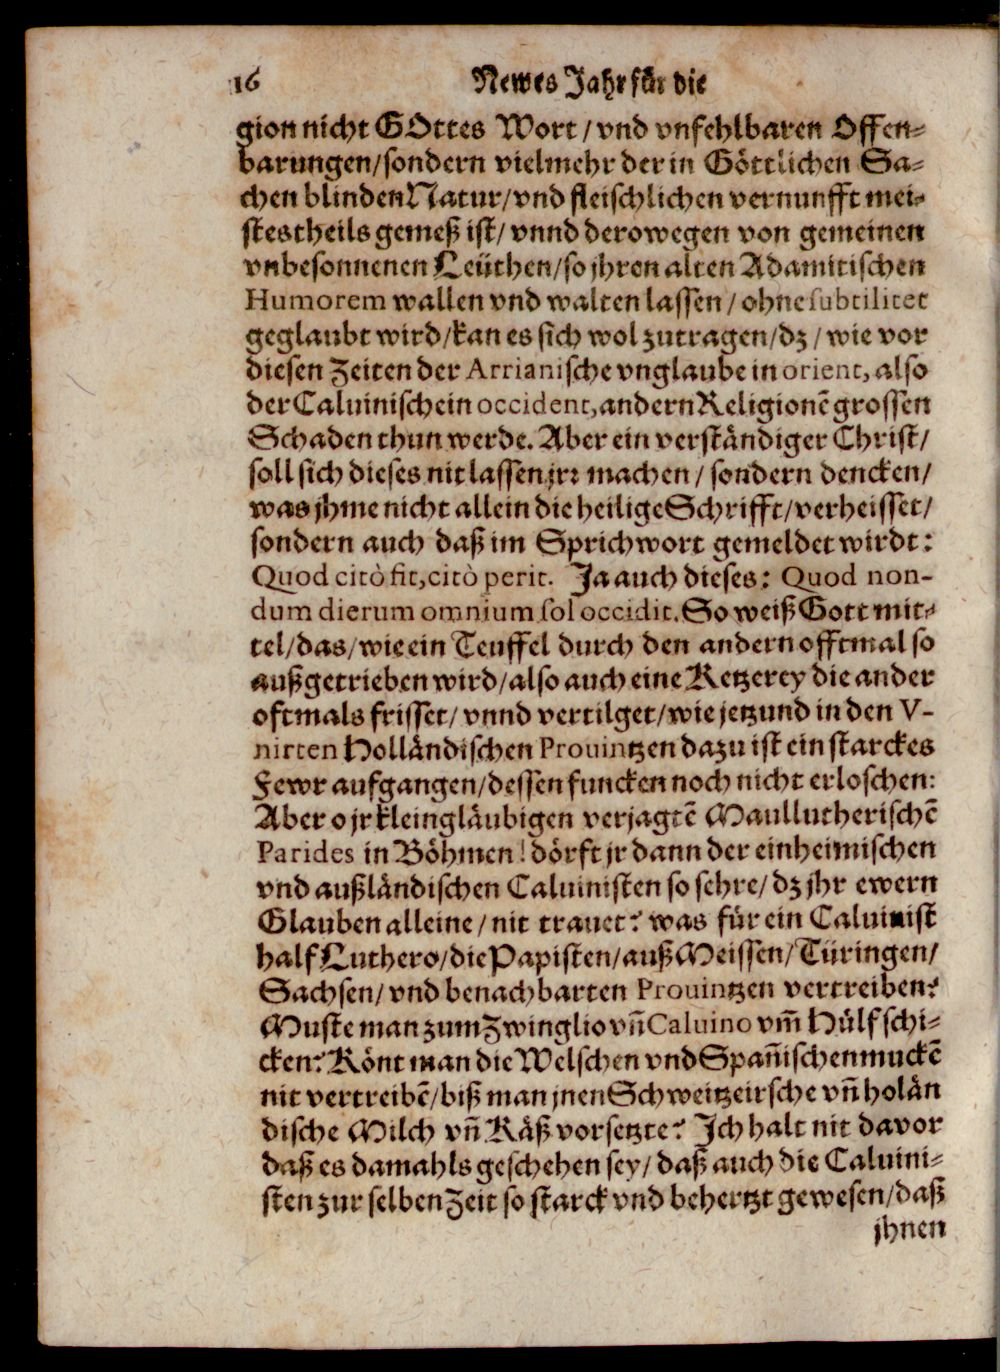 16 Newes Jahr für die
gion nicht GOttes Wort / vnd vnfehlbaren Offen-
barungen / sondern vielmehr der in Göttlichen Sa-
chen blinden Natur / vnd fleischlichen vernunfft mei-
stestheils gemeß ist / vnnd derowegen von gemeinen
vnbesonnenen Leüthen / so jhren alten Adamitischen
Humorem wallen vnd walten lassen / ohne subtilitet
geglaubt wird / kan es sich wol zutragen / dz / wie vor
diesen Zeiten der Arrianische vnglaube in orient, also
der Caluinische in occident, andern Religionē grossen
Schaden thun werde. Aber ein verständiger Christ /
soll sich dieses nit lassen jrr machen / sondern dencken /
was jhme nicht allein die heilige Schrifft / verheisset /
sondern auch daß im Sprichwort gemeldet wirdt:
Quod citò fit, citò perit. Ja auch dieses: Quod non-
dum dierum omnium sol occidit. So weiß Gott mit-
tel / das / wie ein Teuffel durch den andern offtmal so
außgetrieben wird / also auch eine Ketzerey die ander
oftmals frisset / vnnd vertilget / wie jetzund in den V-
nirten Holländischen Prouintzen dazu ist ein starckes
Fewr aufgangen / dessen funcken noch nicht erloschen:
Aber o jr kleingläubigen verjagtē Maullutherischē
Parides in Böhmen! dörft jr dann der einheimischen
vnd außländischen Caluinisten so sehre / dz jhr ewern
Glauben alleine / nit trauet? was für ein Caluinist
half Luthero / die Papisten / auß Meissen / Türingen /
Sachsen / vnd benachbarten Prouintzen vertreiben?
Muste man zum Zwinglio vñ Caluino vm̃ Hülf schi-
cken? Könt man die Welschen vnd Spañischen muckē
nit vertreibē / biß man jnen Schweitzeirsche vñ holän
dische Milch vñ Käß vorsetzte? Ich halt nit davor
daß es damahls geschehen sey / daß auch die Caluini-
sten zur selben Zeit so starck vnd behertzt gewesen / daß
jhnen